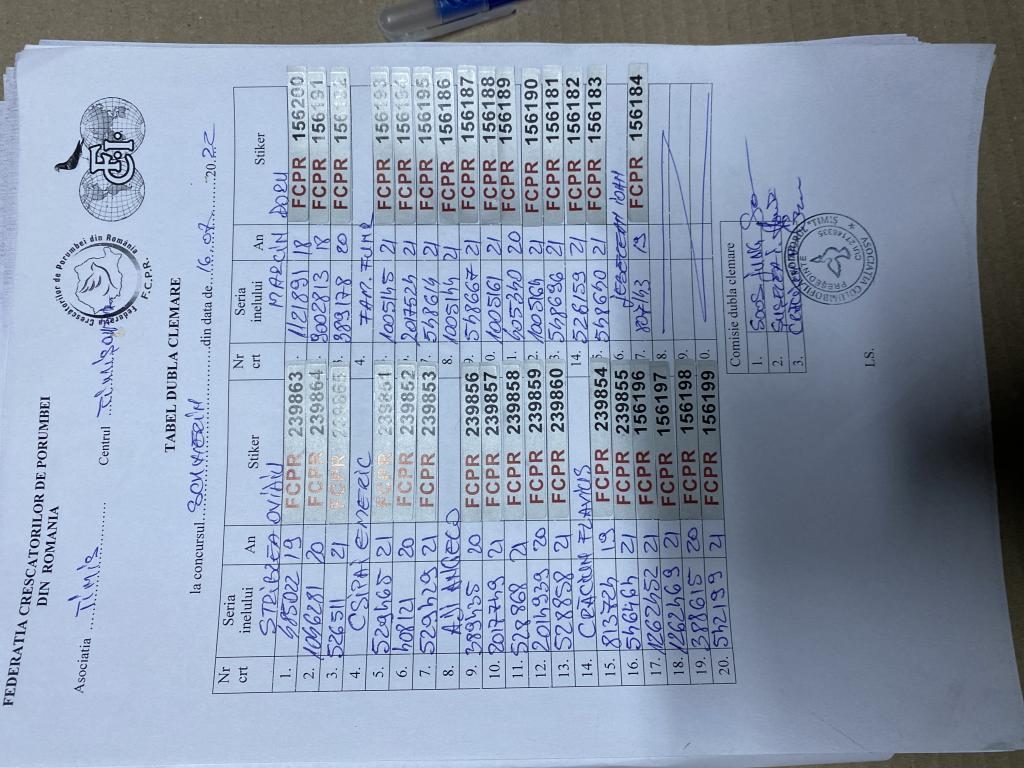 FEDERATIA CRESCATORILOR DE PORUMBEI
DIN ROMANIA
Federația Crescătorilor de Porumbei din România
F.C.P.R.
Asociatia TIMIS Centrul
TABEL DUBLA CLEMARE
la concursul din data de 16.07.2022
Nr crt Seria inelului An Stiker
STRIBZEA OVIAN
1. 485022 19 FCPR 239863
2. 1046281 20 FCPR 239864
3. 526511 21 FCPR 239865
4. CSIPAI EMERIC
5. 529465 21 FCPR 239851
6. 408121 20 FCPR 239852
7. 529429 21 FCPR 239853
8. ANI
9. 389435 20 FCPR 239856
10. 2017749 21 FCPR 239857
11. 528868 21 FCPR 239858
12. 2014939 20 FCPR 239859
13. 528858 21 FCPR 239860
14. CRACIUN FLAVIUS
15. 813724 19 FCPR 239854
16. 546464 21 FCPR 239855
17. 1262452 21 FCPR 156196
18. 1262469 21 FCPR 156197
19. 398615 20 FCPR 156198
20. 545219 21 FCPR 156199
Nr crt Seria inelului An Stiker
MARCIN DORU
1121891 18 FCPR 156200
9002813 18 FCPR 156191
3. 389178 20 FCPR 156192
4. FAM. FUMR
1005145 21 FCPR 156193
2017524 21 FCPR 156194
7. 548614 21 FCPR 156195
8. 1005144 21 FCPR 156186
9. 548667 21 FCPR 156187
0. 1005161 21 FCPR 156188
1. 405340 20 FCPR 156189
2. 1005164 21 FCPR 156190
3. 548696 21 FCPR 156181
14. 526159 21 FCPR 156182
5. 548640 21 FCPR 156183
6. IOAN
7. 80743 19 FCPR 156184
8.
9.
0.
Comisie dubla clemare
1. SOOS
2.
3.
ASOCIATIA COLUMBOFILA TIMIS
PRESEDINTE
L.S.